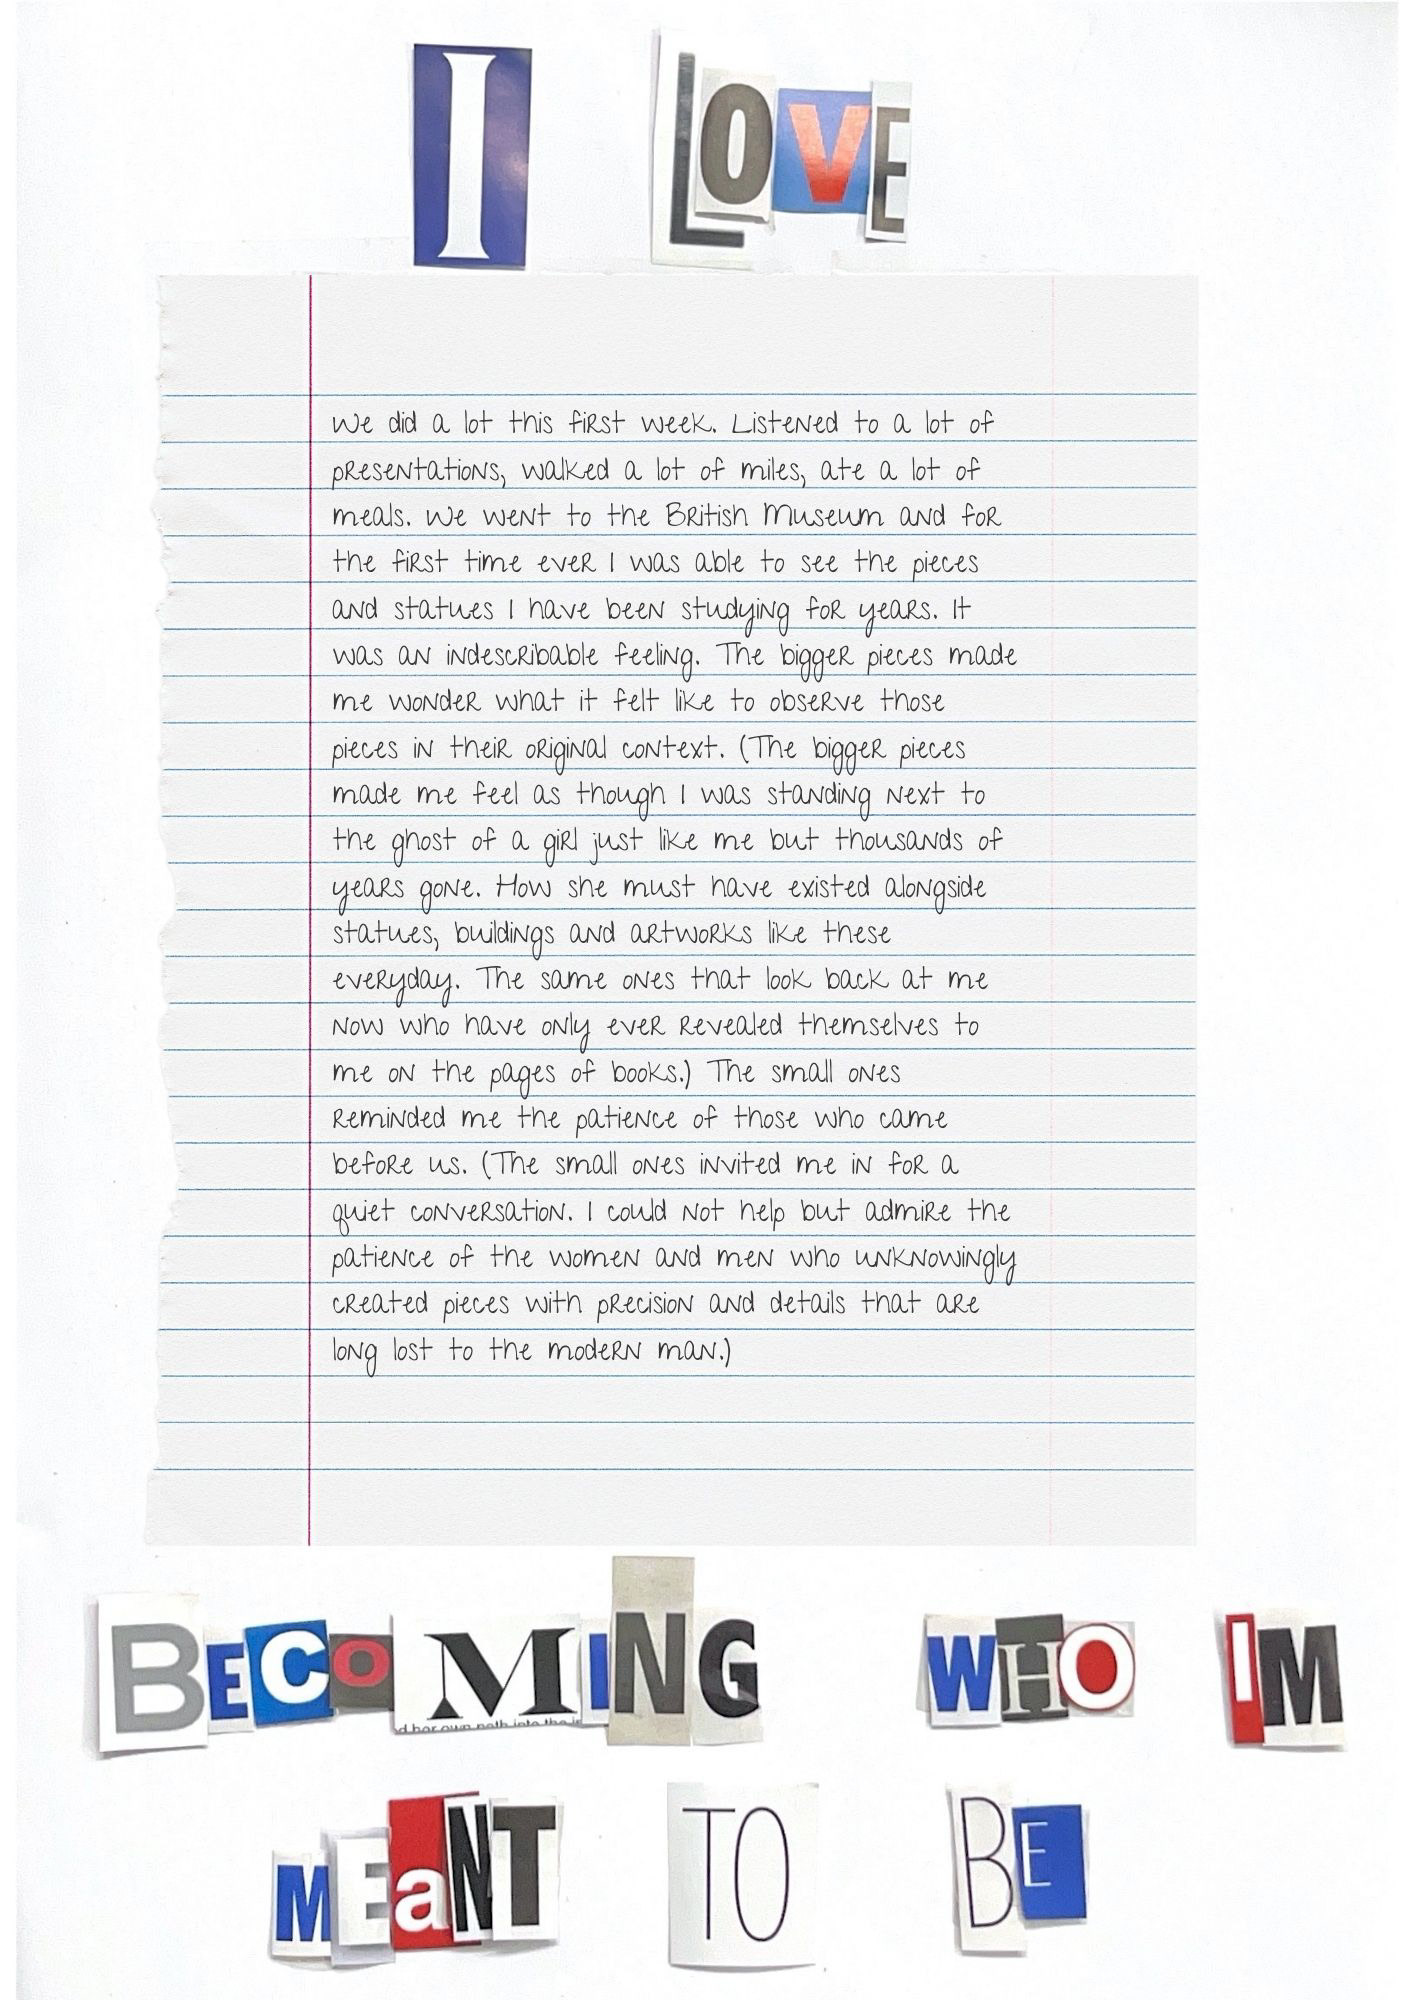 I LOVE
We did a lot this first week. Listened to a lot of
presentations, walked a lot of miles, ate a lot of
meals. We went to the British Museum and for
the first time ever I was able to see the pieces
and statues I have been studying for years. It
was an indescribable feeling. The bigger pieces made
me wonder what it felt like to observe those
pieces in their original context. (The bigger pieces
made me feel as though I was standing next to
the ghost of a girl just like me but thousands of
years gone. How she must have existed alongside
statues, buildings and artworks like these
everyday. The same ones that look back at me
now who have only ever revealed themselves to
me on the pages of books.) The small ones
reminded me the patience of those who came
before us. (The small ones invited me in for a
quiet conversation. I could not help but admire the
patience of the women and men who unknowingly
created pieces with precision and details that are
long lost to the modern man.)
BECOMING WHO IM
d her own path into the
MEaNT TO BE